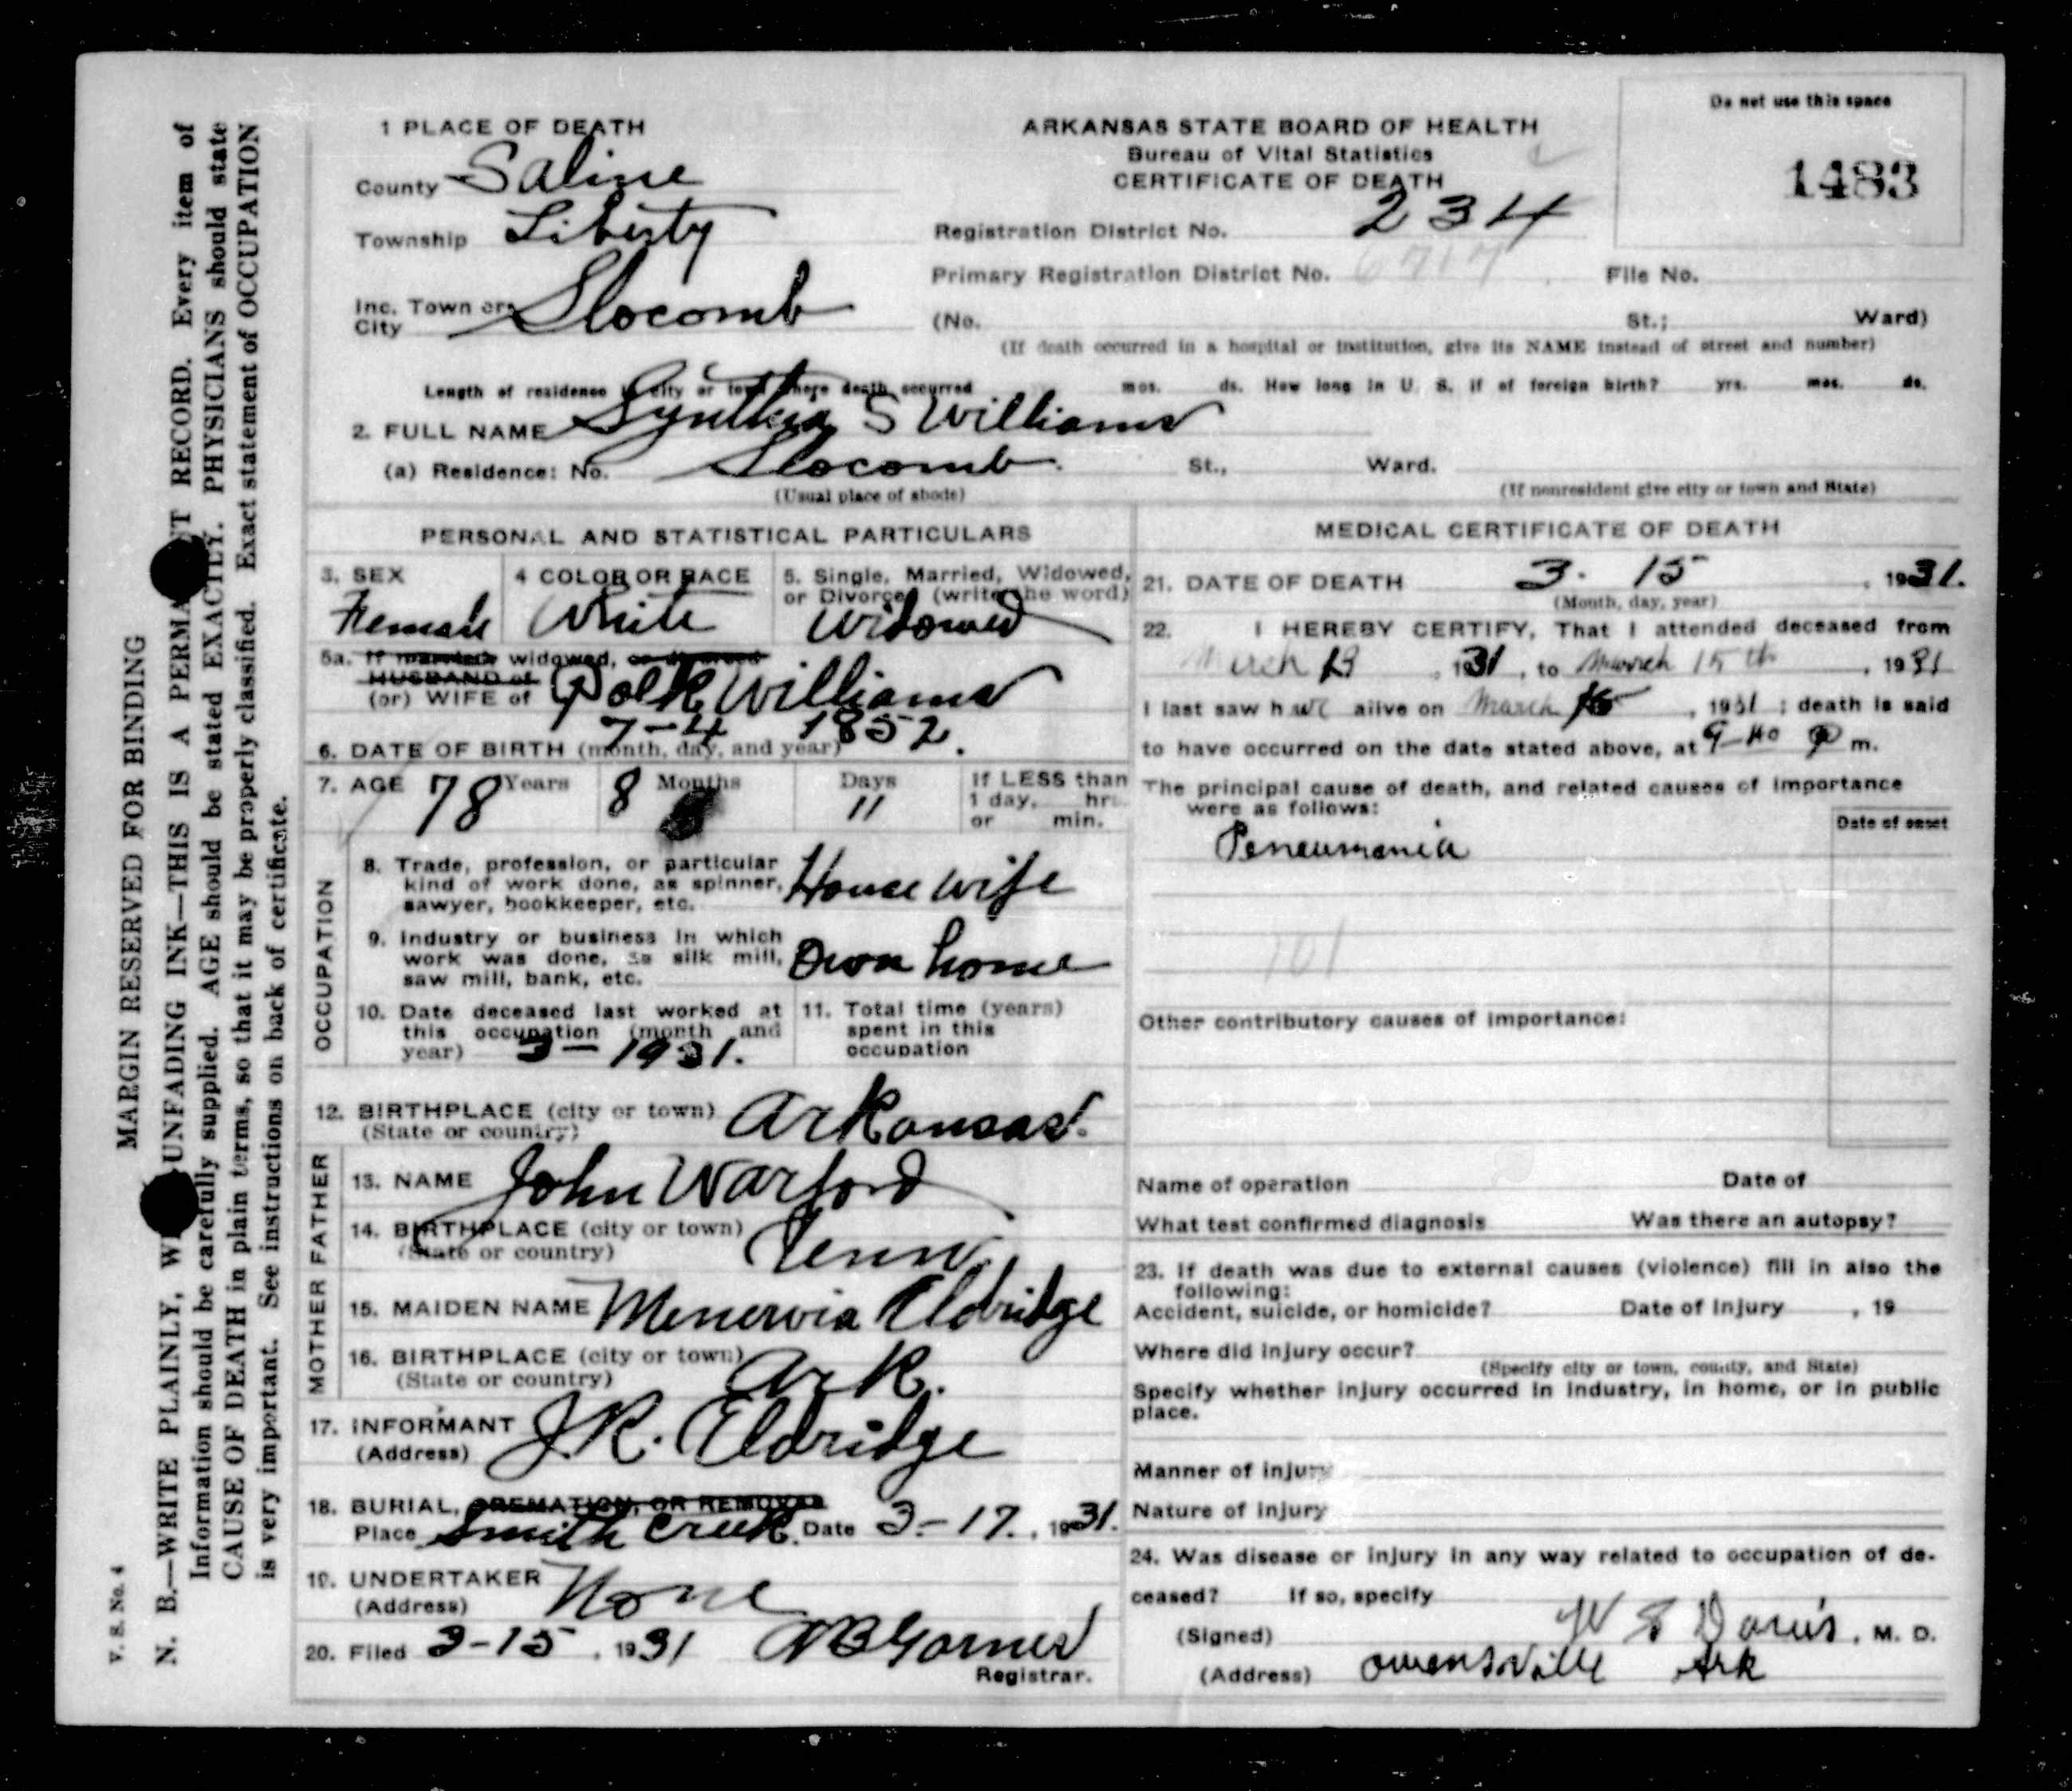 Do not use this space
1483
1 PLACE OF DEATH
County Saline
Township Liberty
Inc. Town or City Slocomb
ARKANSAS STATE BOARD OF HEALTH
Bureau of Vital Statistics
CERTIFICATE OF DEATH
Registration District No. 234
Primary Registration District No. 6717 File No.
(No. St.; Ward)
(If death occurred in a hospital or institution, give its NAME instead of street and number)
Length of residence in city or town where death occurred mos. ds. How long in U. S. if of foreign birth? yrs. mos. ds.
2. FULL NAME Synthia S Williams
(a) Residence: No. Slocomb. St., Ward.
(Usual place of abode) (If nonresident give city or town and State)
PERSONAL AND STATISTICAL PARTICULARS
3. SEX Female
4 COLOR OR RACE White
5. Single, Married, Widowed, or Divorced (write the word) Widowed
5a. If married, widowed, or divorced
HUSBAND of
(or) WIFE of Polk Williams
6. DATE OF BIRTH (month, day, and year) 7-4 1852.
7. AGE 78 Years 8 Months Days 11 If LESS than 1 day, hrs. or min.
OCCUPATION
8. Trade, profession, or particular
kind of work done, as spinner,
sawyer, bookkeeper, etc. House wife
9. Industry or business in which
work was done, as silk mill,
saw mill, bank, etc. Own home
10. Date deceased last worked at
this occupation (month and
year) 3-1931.
11. Total time (years)
spent in this
occupation
12. BIRTHPLACE (city or town) Arkansas.
(State or country)
FATHER
13. NAME John Warford
14. BIRTHPLACE (city or town) Tenn
(State or country)
MOTHER
15. MAIDEN NAME Menervia Eldridge
16. BIRTHPLACE (city or town) Ark.
(State or country)
17. INFORMANT J.R. Eldridge
(Address)
18. BURIAL, CREMATION, OR REMOVAL
Place Smith Creek. Date 3-17, 1931.
19. UNDERTAKER None
(Address)
20. Filed 3-15, 1931 Garner
Registrar.
MEDICAL CERTIFICATE OF DEATH
21. DATE OF DEATH 3. 15, 1931.
(Month, day, year)
22. I HEREBY CERTIFY, That I attended deceased from
March 13, 1931, to March 15th, 1931
I last saw h alive on March 15, 1931; death is said
to have occurred on the date stated above, at 9-40 P m.
The principal cause of death, and related causes of importance
were as follows:
Date of onset
Peneumania
101
Other contributory causes of importance:
Name of operation Date of
What test confirmed diagnosis Was there an autopsy?
23. If death was due to external causes (violence) fill in also the
following:
Accident, suicide, or homicide? Date of injury , 19
Where did injury occur?
(Specify city or town, county, and State)
Specify whether injury occurred in industry, in home, or in public
place.
Manner of injury
Nature of injury
24. Was disease or injury in any way related to occupation of de-
ceased? If so, specify
(Signed) W S Davis, M. D.
(Address) Owensville Ark
MARGIN RESERVED FOR BINDING
N. B.—WRITE PLAINLY, UNFADING INK—THIS IS A PERMANENT RECORD. Every item of
Information should be carefully supplied. AGE should be stated EXACTLY. PHYSICIANS should state
CAUSE OF DEATH in plain terms, so that it may be properly classified. Exact statement of OCCUPATION
is very important. See instructions on back of certificate.
V. S. No. 4